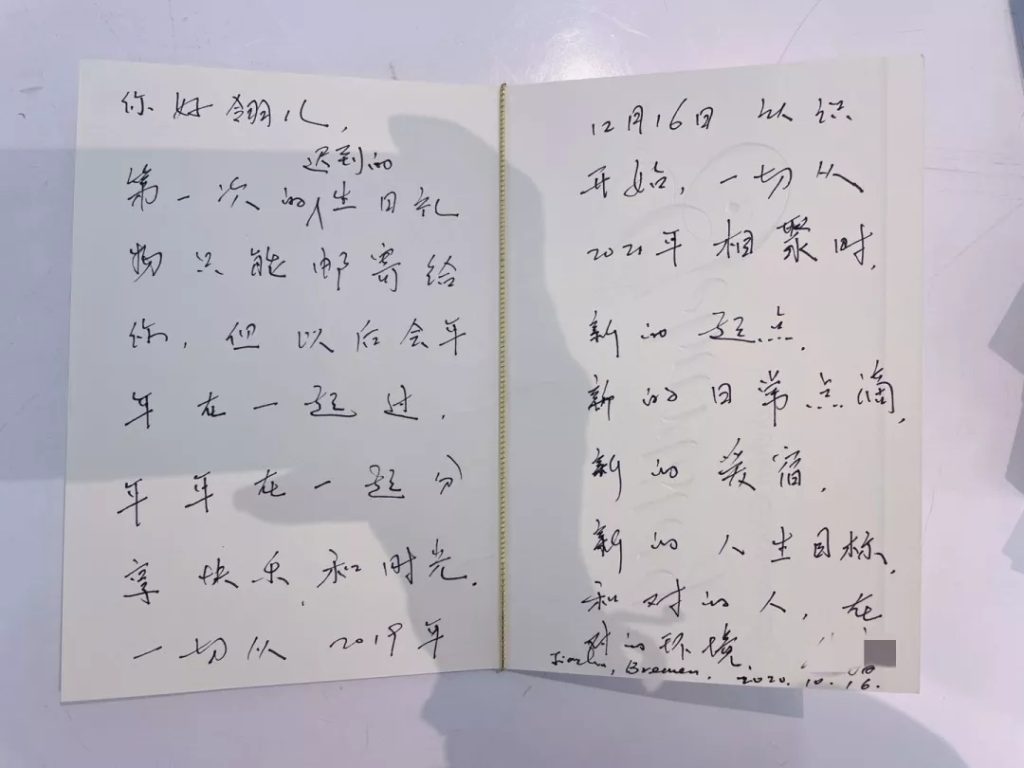 你好翎儿，
迟到的
第一次的生日礼
物只能邮寄给
你，但以后会年
年在一起过，
年年在一起分
享快乐和时光。
一切从2019年
12月16日认识
开始，一切从
2021年相聚时，
新的起点，
新的日常点滴，
新的 宿，
新的人生目标，
和对的人，在
对的环境，
Bremen, 2020.10.16.